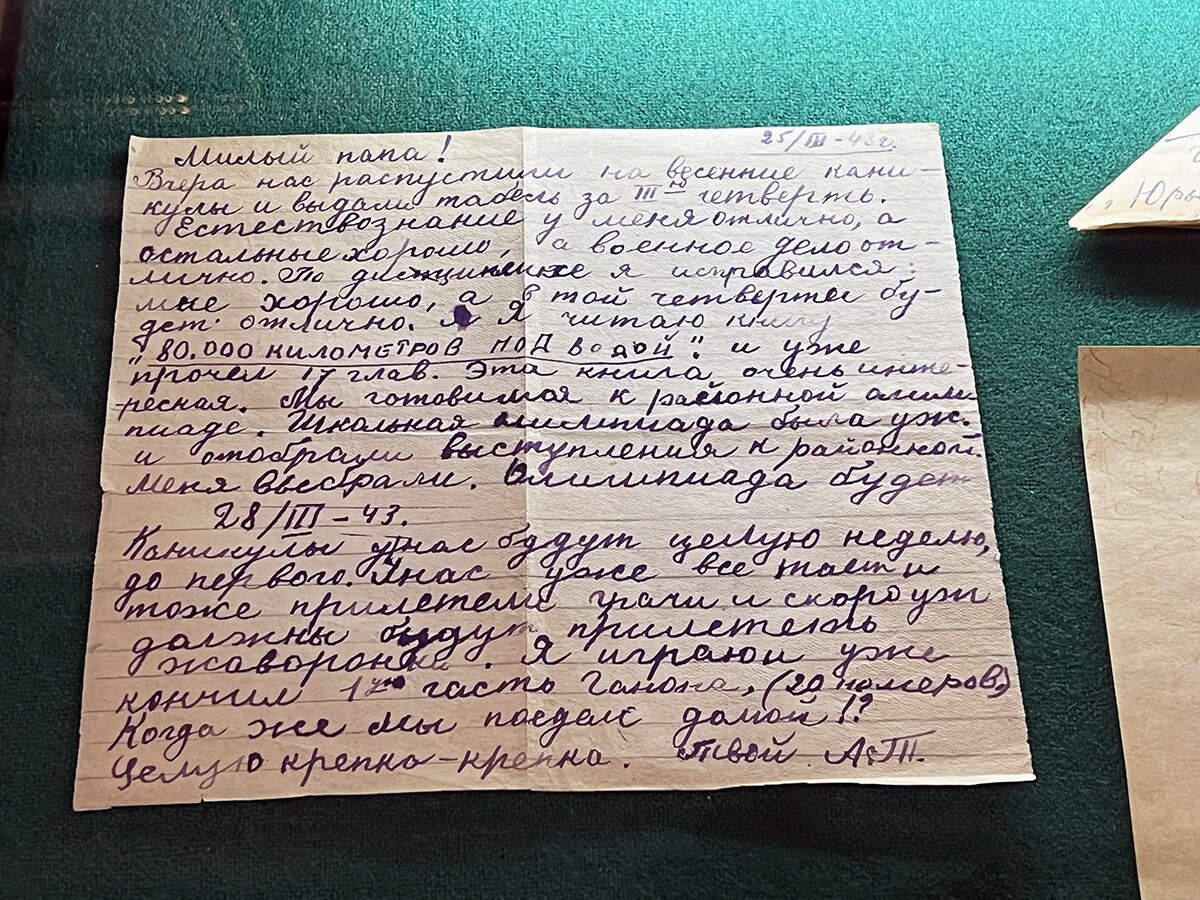 25/III-43г.
Милый папа!
Вчера нас распустили на весенние кани-
кулы и выдали табель за III ю четверть.
Естествознание у меня отлично, а
остальные хорошо, а военное дело от-
лично. По дисциплине я исправился:
мне хорошо, а в той четверти бу-
дет отлично. Я читаю книгу
"80.000 КИЛОМЕТРОВ ПОД ВОДОЙ". и уже
прочел 17 глав. Эта книга очень инте-
ресная. Мы готовимся к районной олим
пиаде. Школьная олимпиада была уж.
и отобрали выступления к районной.
Меня выбрали. Олимпиада будет
28/III-43.
Каникулы у нас будут целую неделю,
до первого. У нас уже все тает и
тоже прилетели грачи и скоро уж
должны будут прилететь
жаворонки. Я играю и уже
кончил 1ую часть Ганона, (20 номеров.)
Когда же мы поедем домой!?
Целую крепко-крепко. Твой А.Т.
Юры